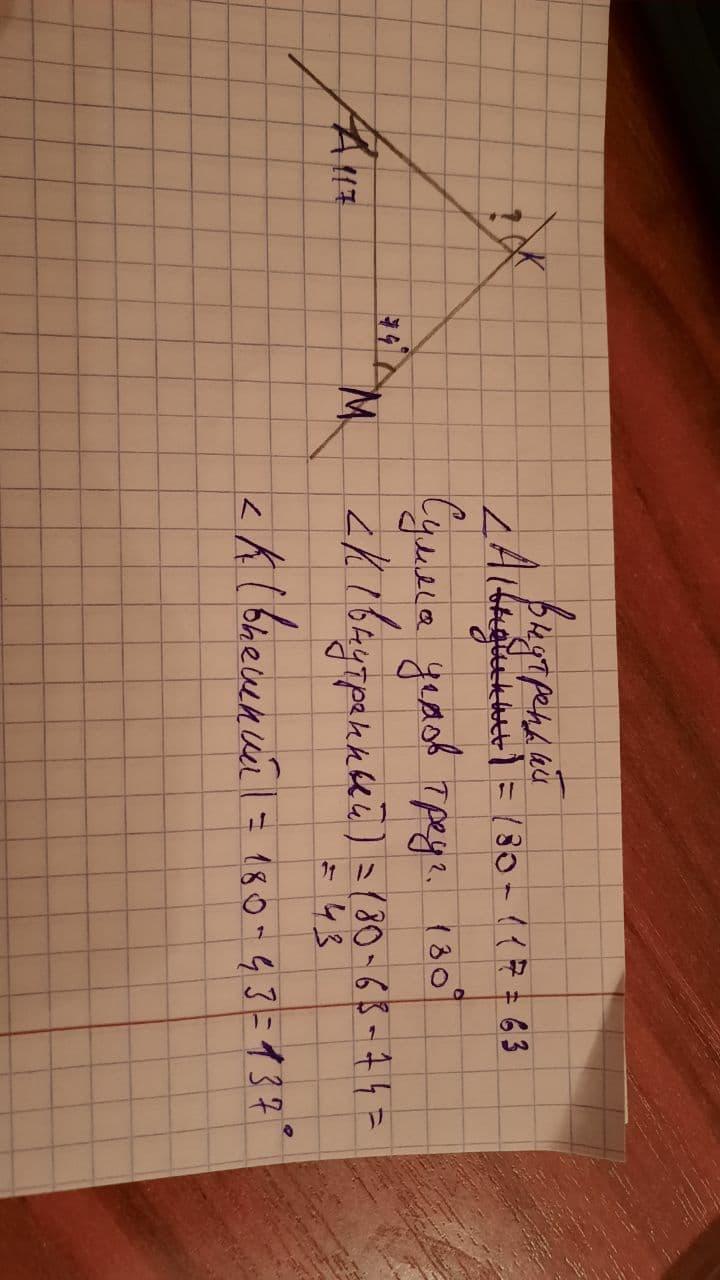 ?
K
A 117
74°
M
внутренний
<A(внешний) = 180 - 117 = 63
Сумма углов треуг. 180°
<K(внутранный) = 180 - 63 - 74 =
= 43
<K(внешний) = 180 - 43 = 137°